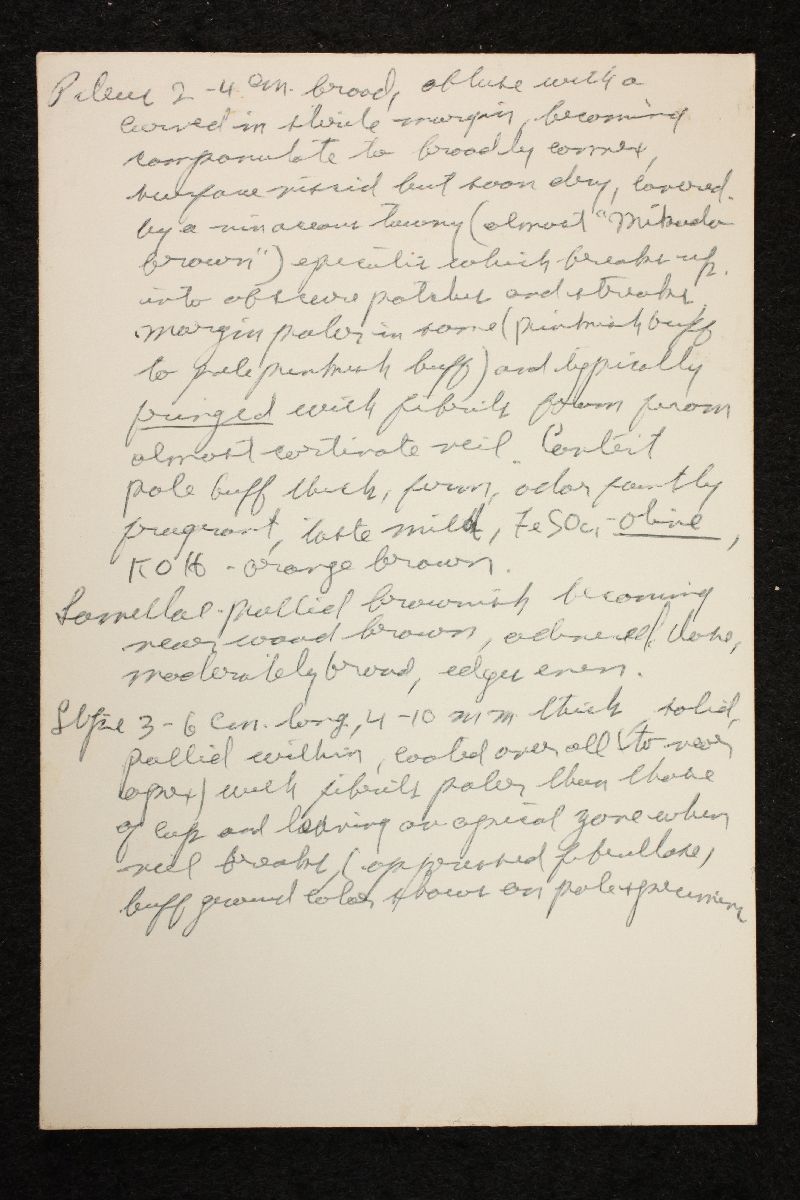 Pileus 2-4 cm. broad, obtuse with a
curved in sterile margin, becoming
campanulate to broadly convex,
surface viscid but soon dry, covered
by a vinaceous tawny (almost "Mikado
brown") epicutis which breaks up
into obscure patches and streaks,
margin paler in some (pinkish buff
to pale pinkish buff) and typically
fringed with fibrils from
almost cortinate veil. Context
pale buff thick, firm, odor faintly
fragrant, taste mild, FeSO4-olive,
KOH - orange brown.
Lamellae pallid brownish becoming
near wood brown, adnexed, close,
moderately broad, edges even.
Stipe 3-6 cm. long, 4-10 mm thick solid,
pallid within, coated over all (to near
apex) with fibrils paler than those
of cap and leaving an apical zone when
veil breaks, (appressed fibrillose)
buff ground color shows on pale specimens